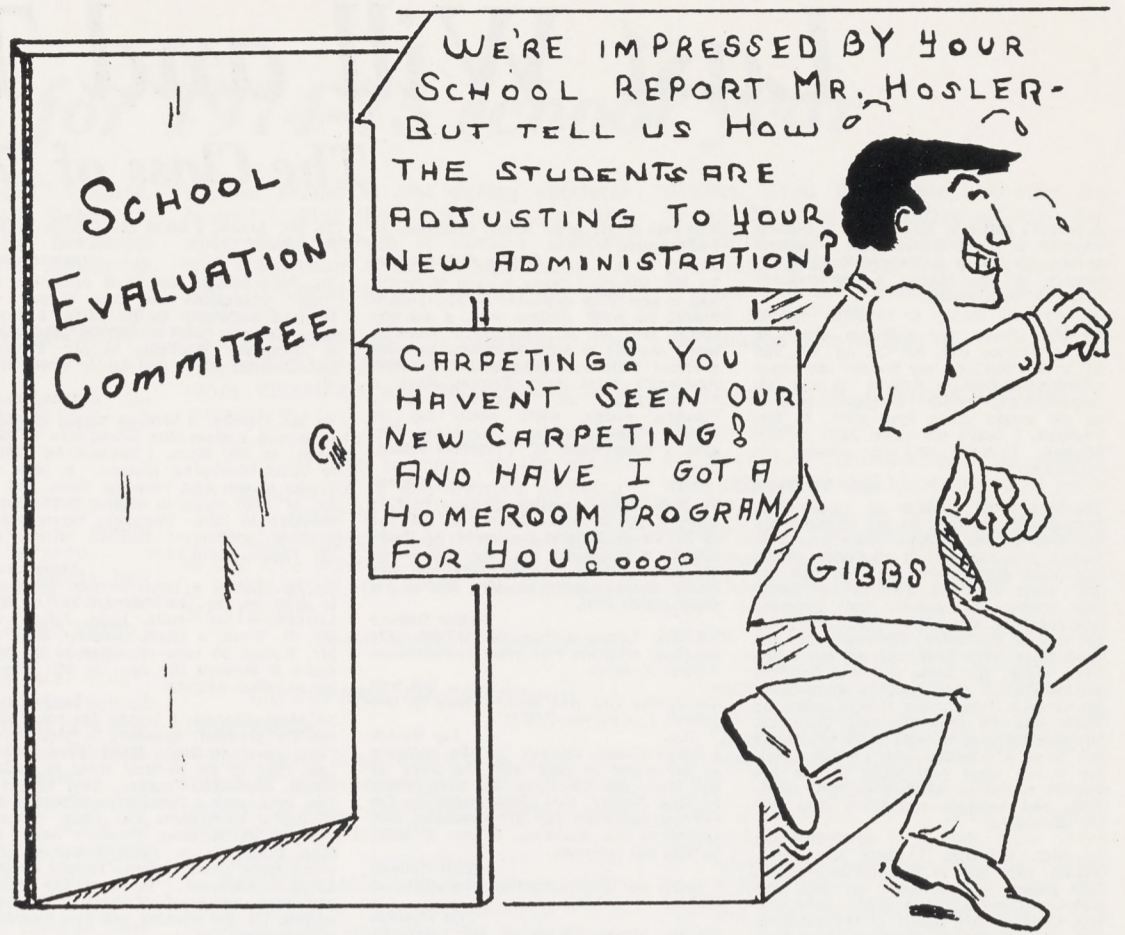 SCHOOL
EVALUATION
COMMITTEE
WE'RE IMPRESSED BY YOUR
SCHOOL REPORT MR. HOSLER-
BUT TELL US HOW
THE STUDENTS ARE
ADJUSTING TO YOUR
NEW ADMINISTRATION?
CARPETING! YOU
HAVEN'T SEEN OUR
NEW CARPETING!
AND HAVE I GOT A
HOMEROOM PROGRAM
FOR YOU!....
GIBBS